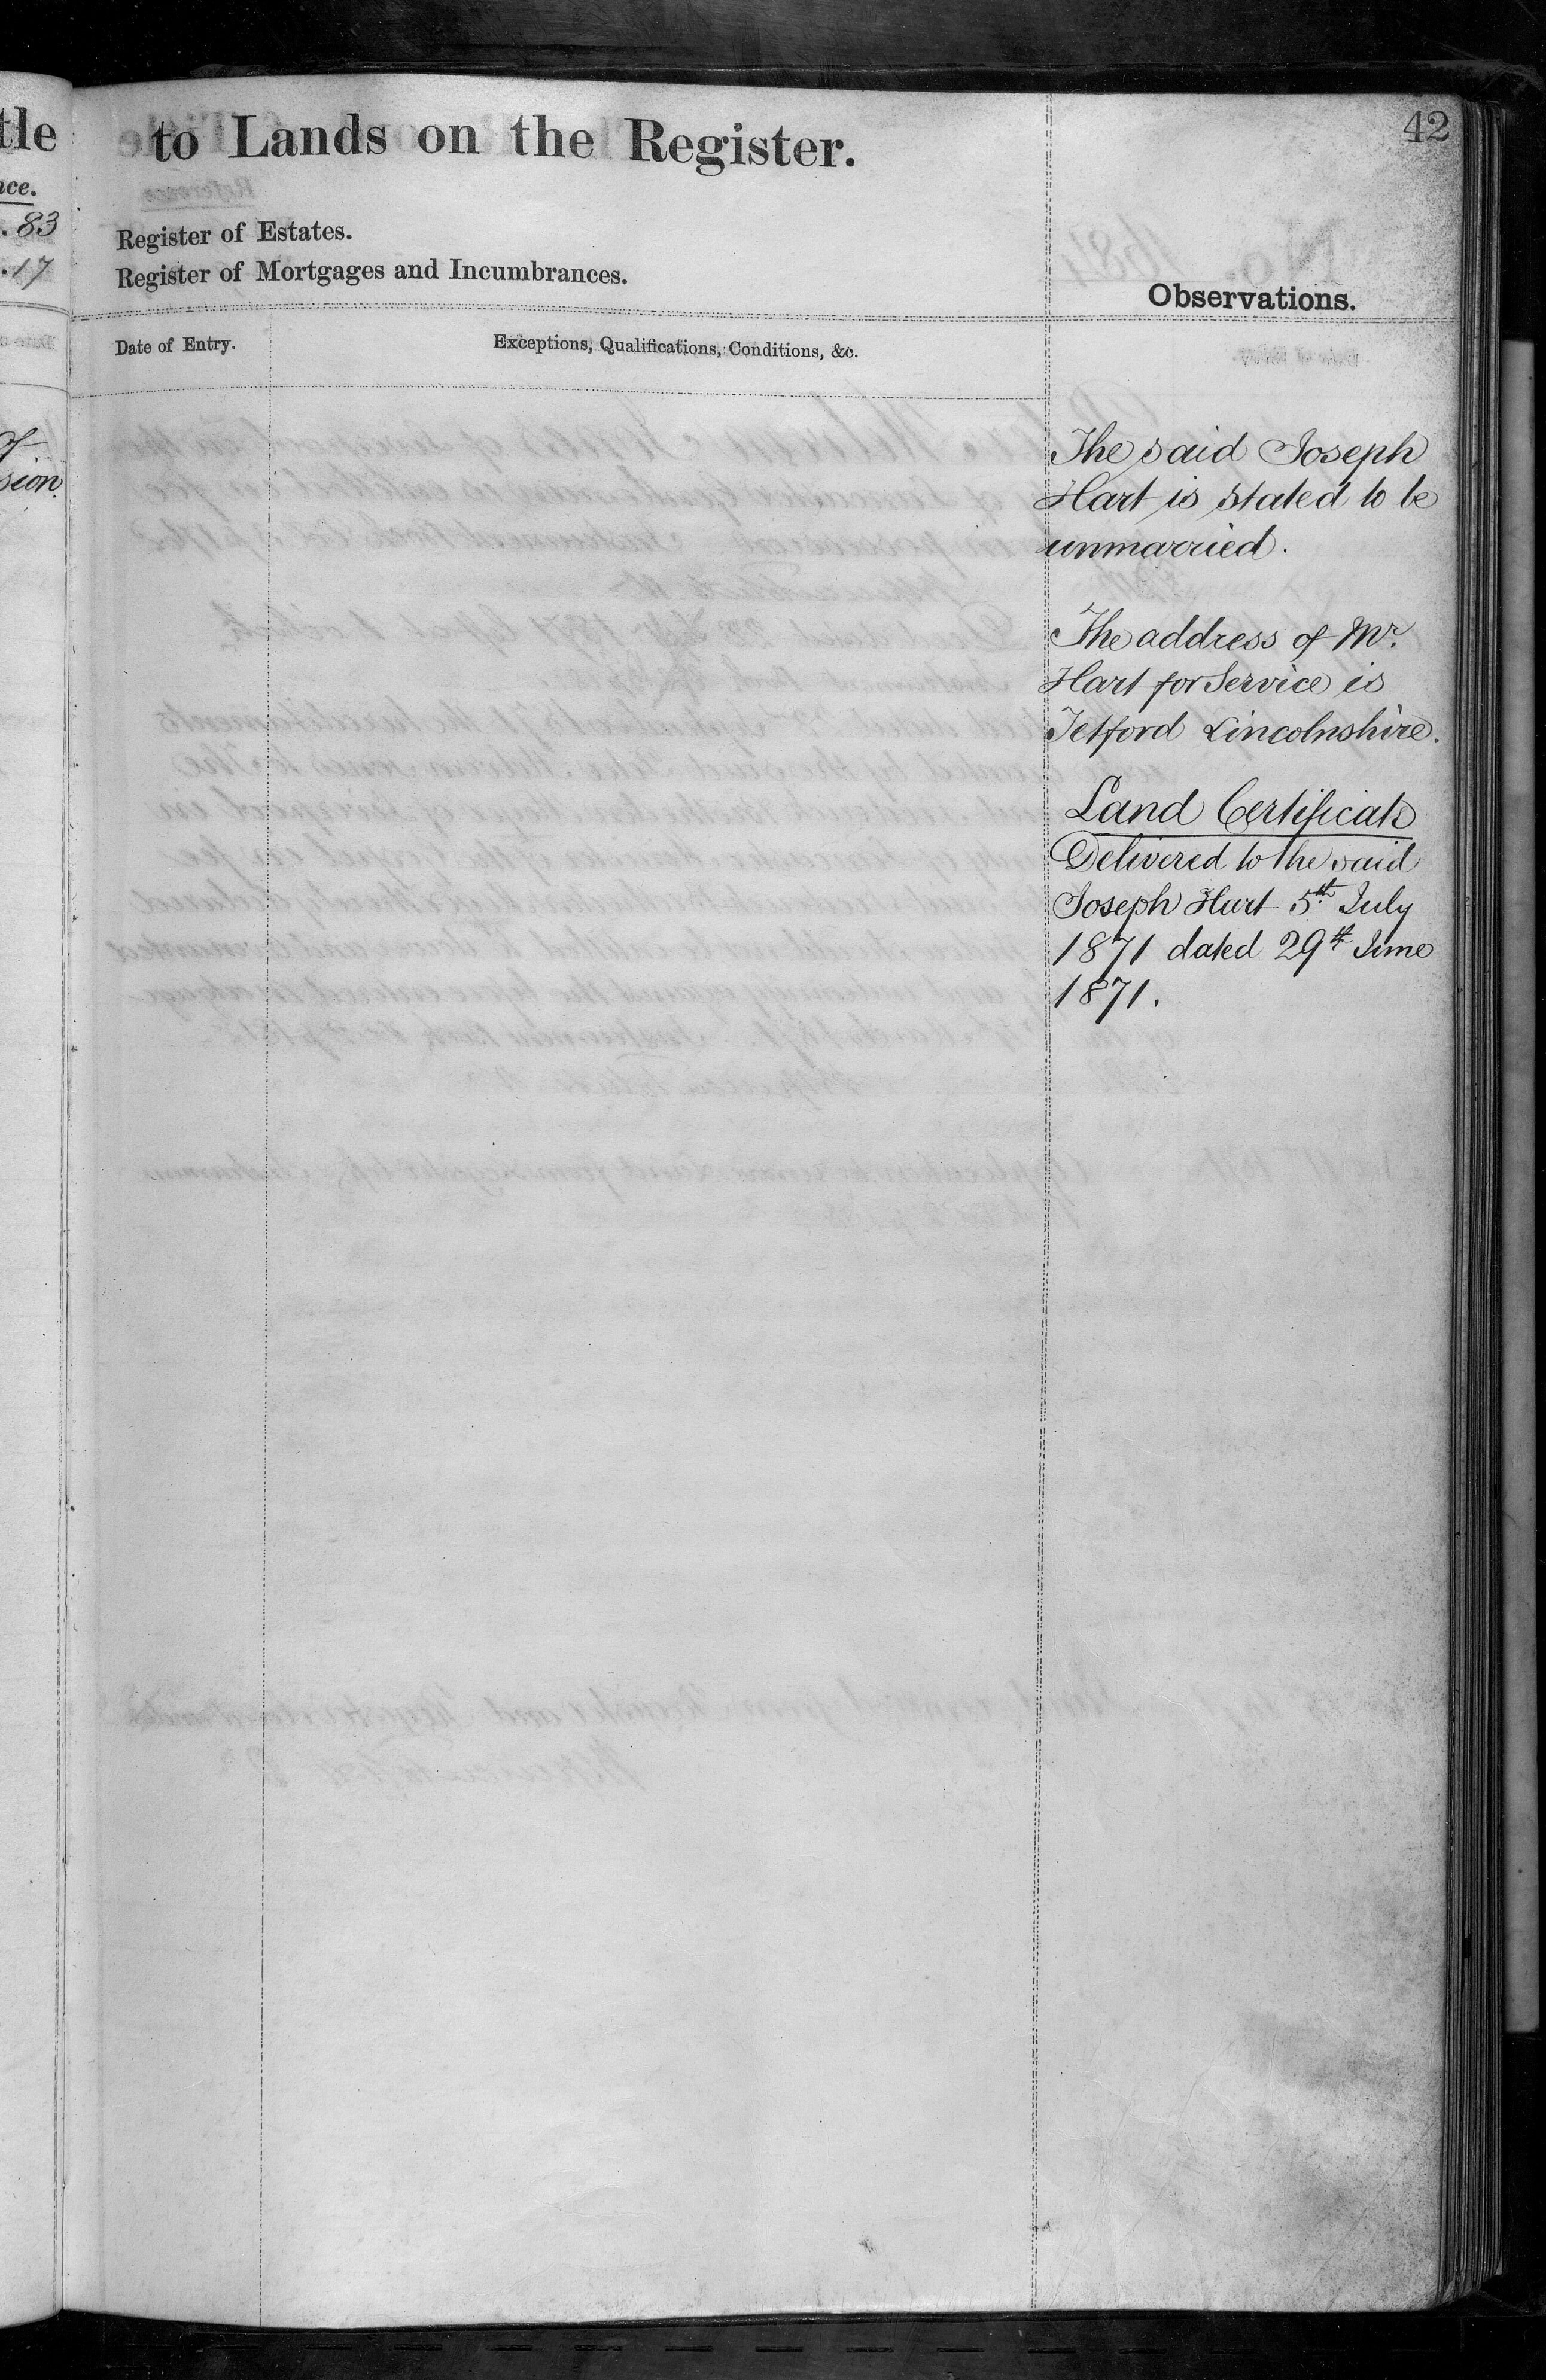 42
tle to Lands on the Register.
nce.
. 83 Register of Estates.
. 17 Register of Mortgages and Incumbrances.
Observations.
Date of Entry. Exceptions, Qualifications, Conditions, &c.
of
sion.
The said Joseph
Hart is stated to be
unmarried.
The address of Mr.
Hart for Service is
Tetford Lincolnshire.
Land Certificate
Delivered to the said
Joseph Hart 5th July
1871 dated 29th June
1871.